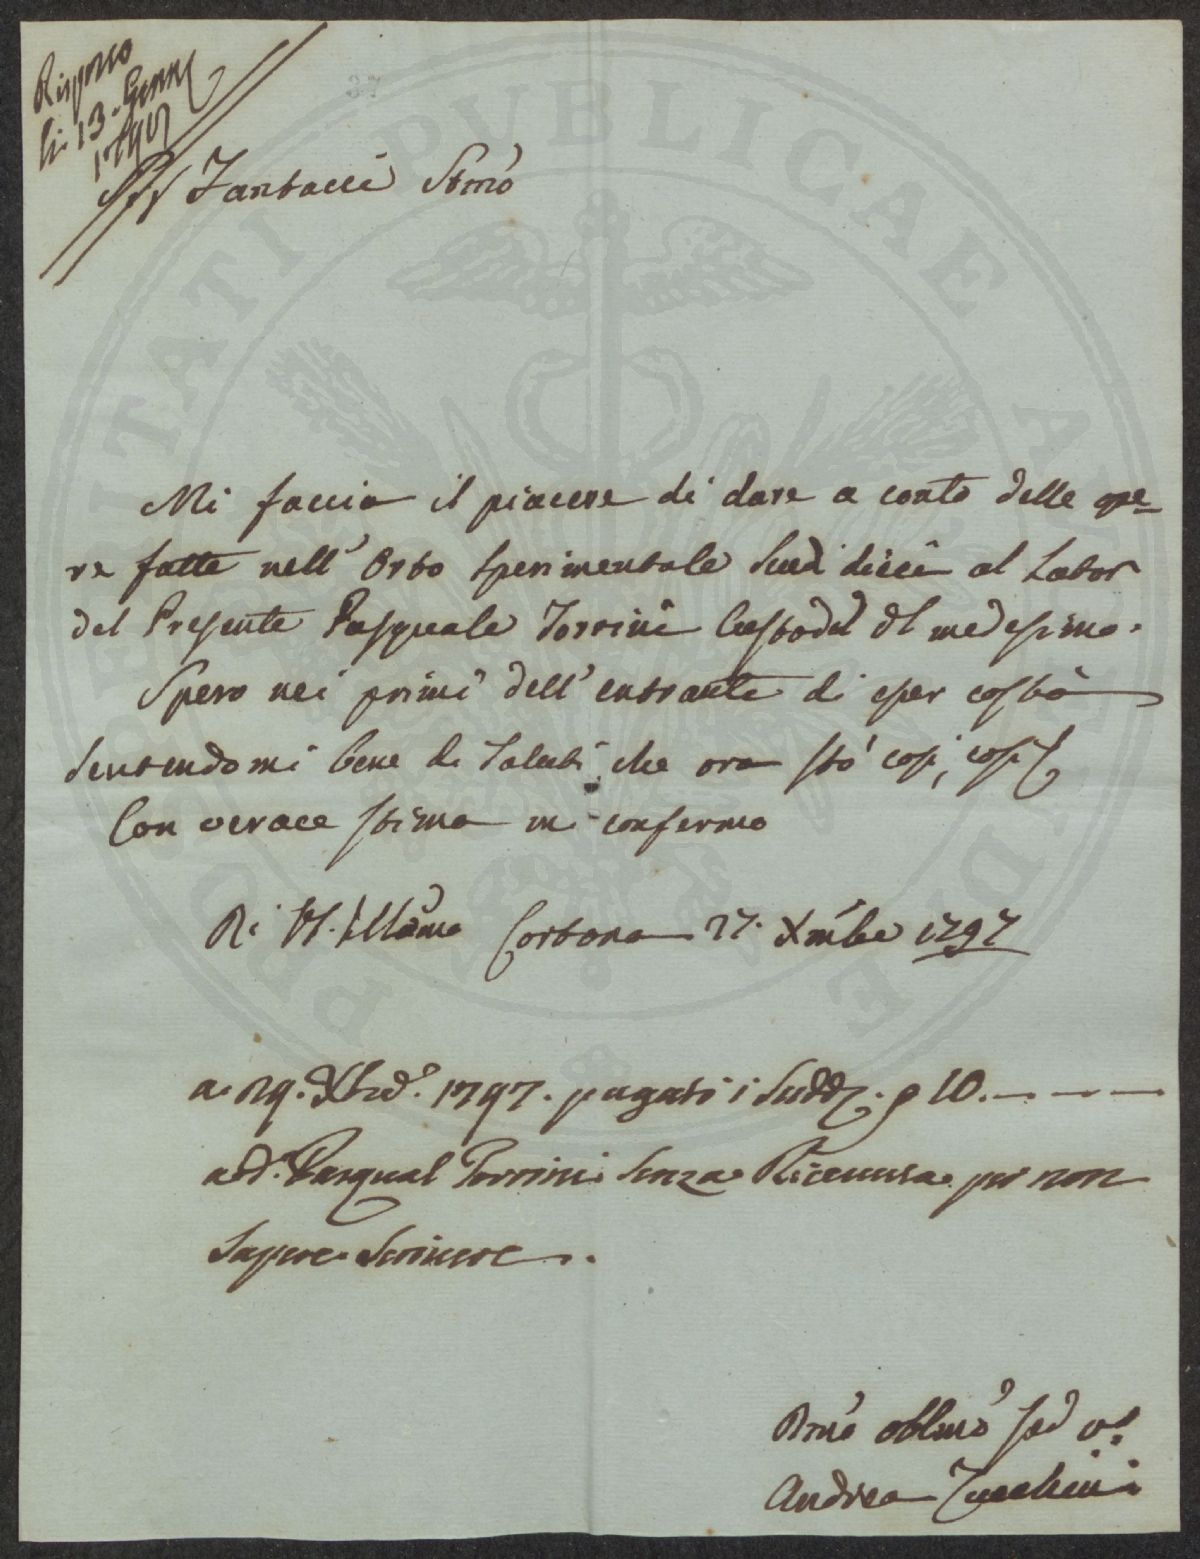 Risposto
li 13. Genn.
1798
Sig. Fantacci Stmo
Mi faccia il piacere di dare a conto delle ope=
re fatte nell' Orto sperimentale Scudi dieci al Lator
del Presente Pasquale Torrini Custode dl medesimo.
Spero nei primi dell' entrante di esser costà
sentendomi bene di salute, che ora stò così, così
Con verace stima mi confermo
Di VS. Illma Cortona 27. Xmbe 1797
a. 29. Xbre. 1797. pagato i Sudd. 10. - - -
a d. Pasqual Torrini senza Ricevuta per non
sapere scrivere.
Dmo obblmo
Andrea Zucchini
PROSPERITATI PUBLICAE AUGENDAE